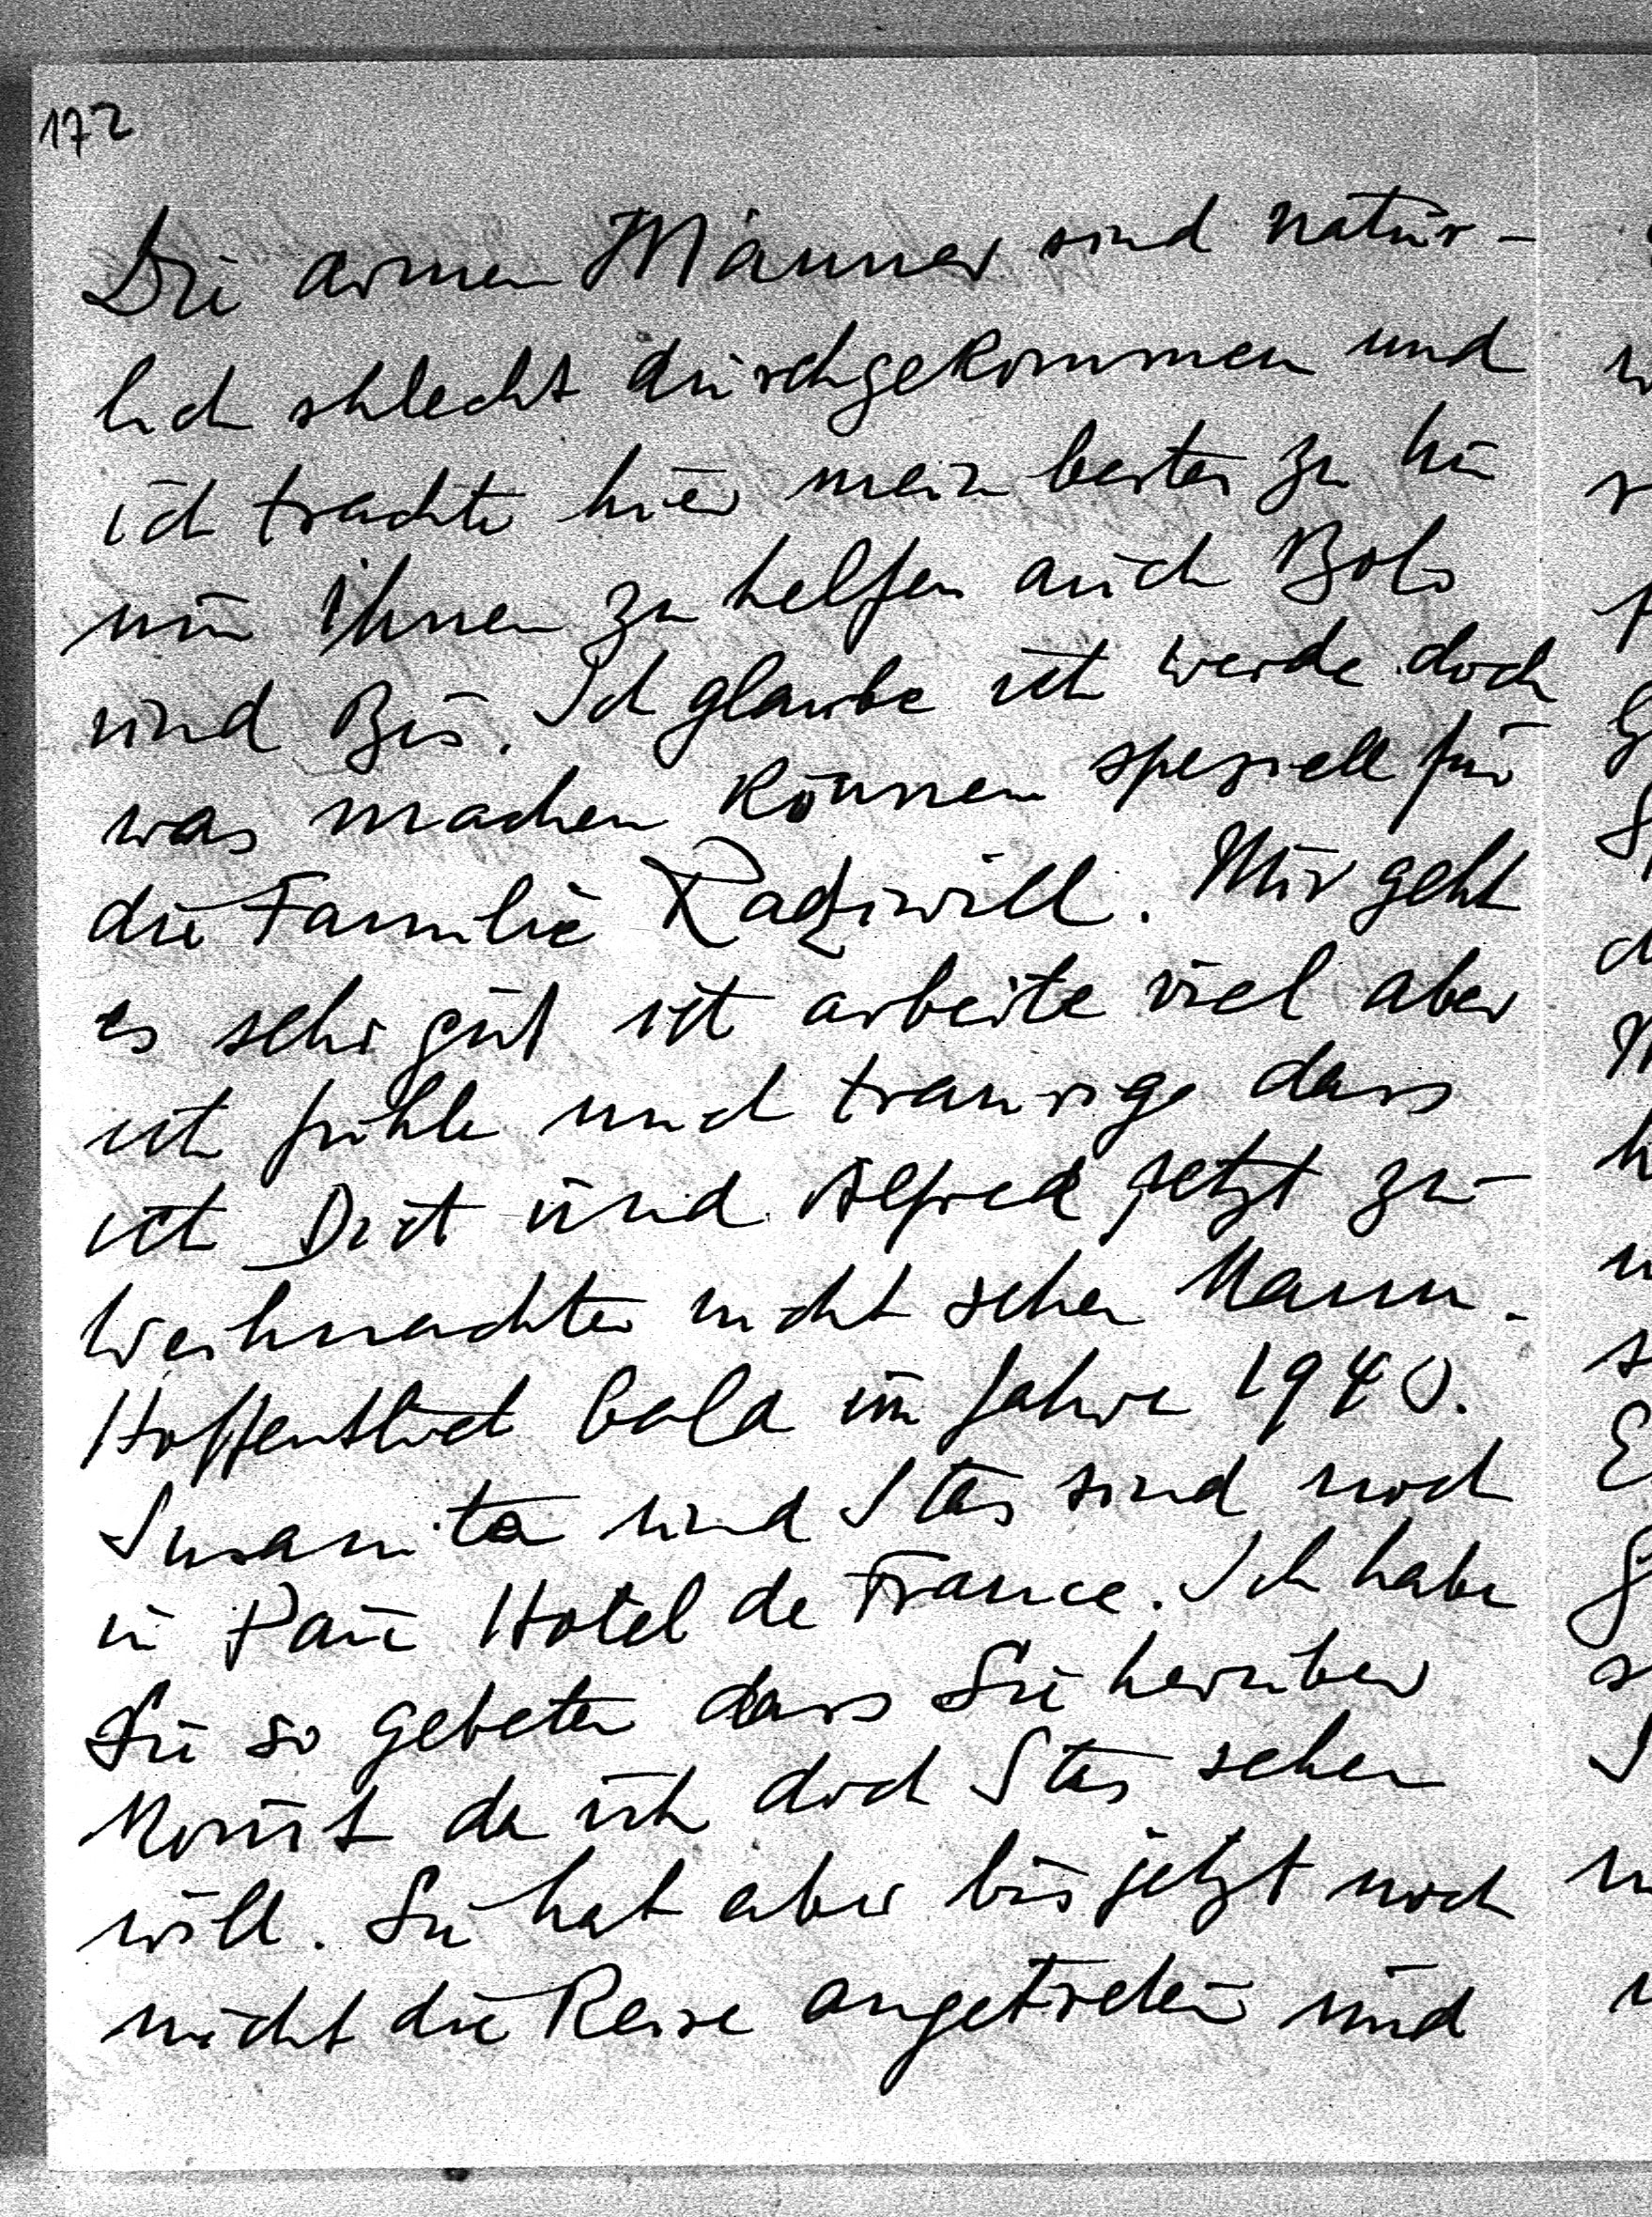 172
Die armen Männer sind natür-
lich schlecht durchgekommen und
ich trachte hier mein bestes zu tun
um ihnen zu helfen auch Bolo
und Bis. Ich glaube ich werde doch
was machen können speziell für
die Familie Radziwill. Mir geht
es sehr gut ich arbeite viel aber
ich fühle mich traurige dass
ich Dich und Alfred jetzt zu
Weihnachten nicht sehen kann.
Hoffentlich bald im Jahre 1940.
Susanita und Stas sind noch
in Paris Hotel de France. Ich habe
Sie so gebeten dass Sie herüber
kommt da ich doch Stas sehen
will. Sie hat aber bis jetzt noch
nicht die Reise angetreten und